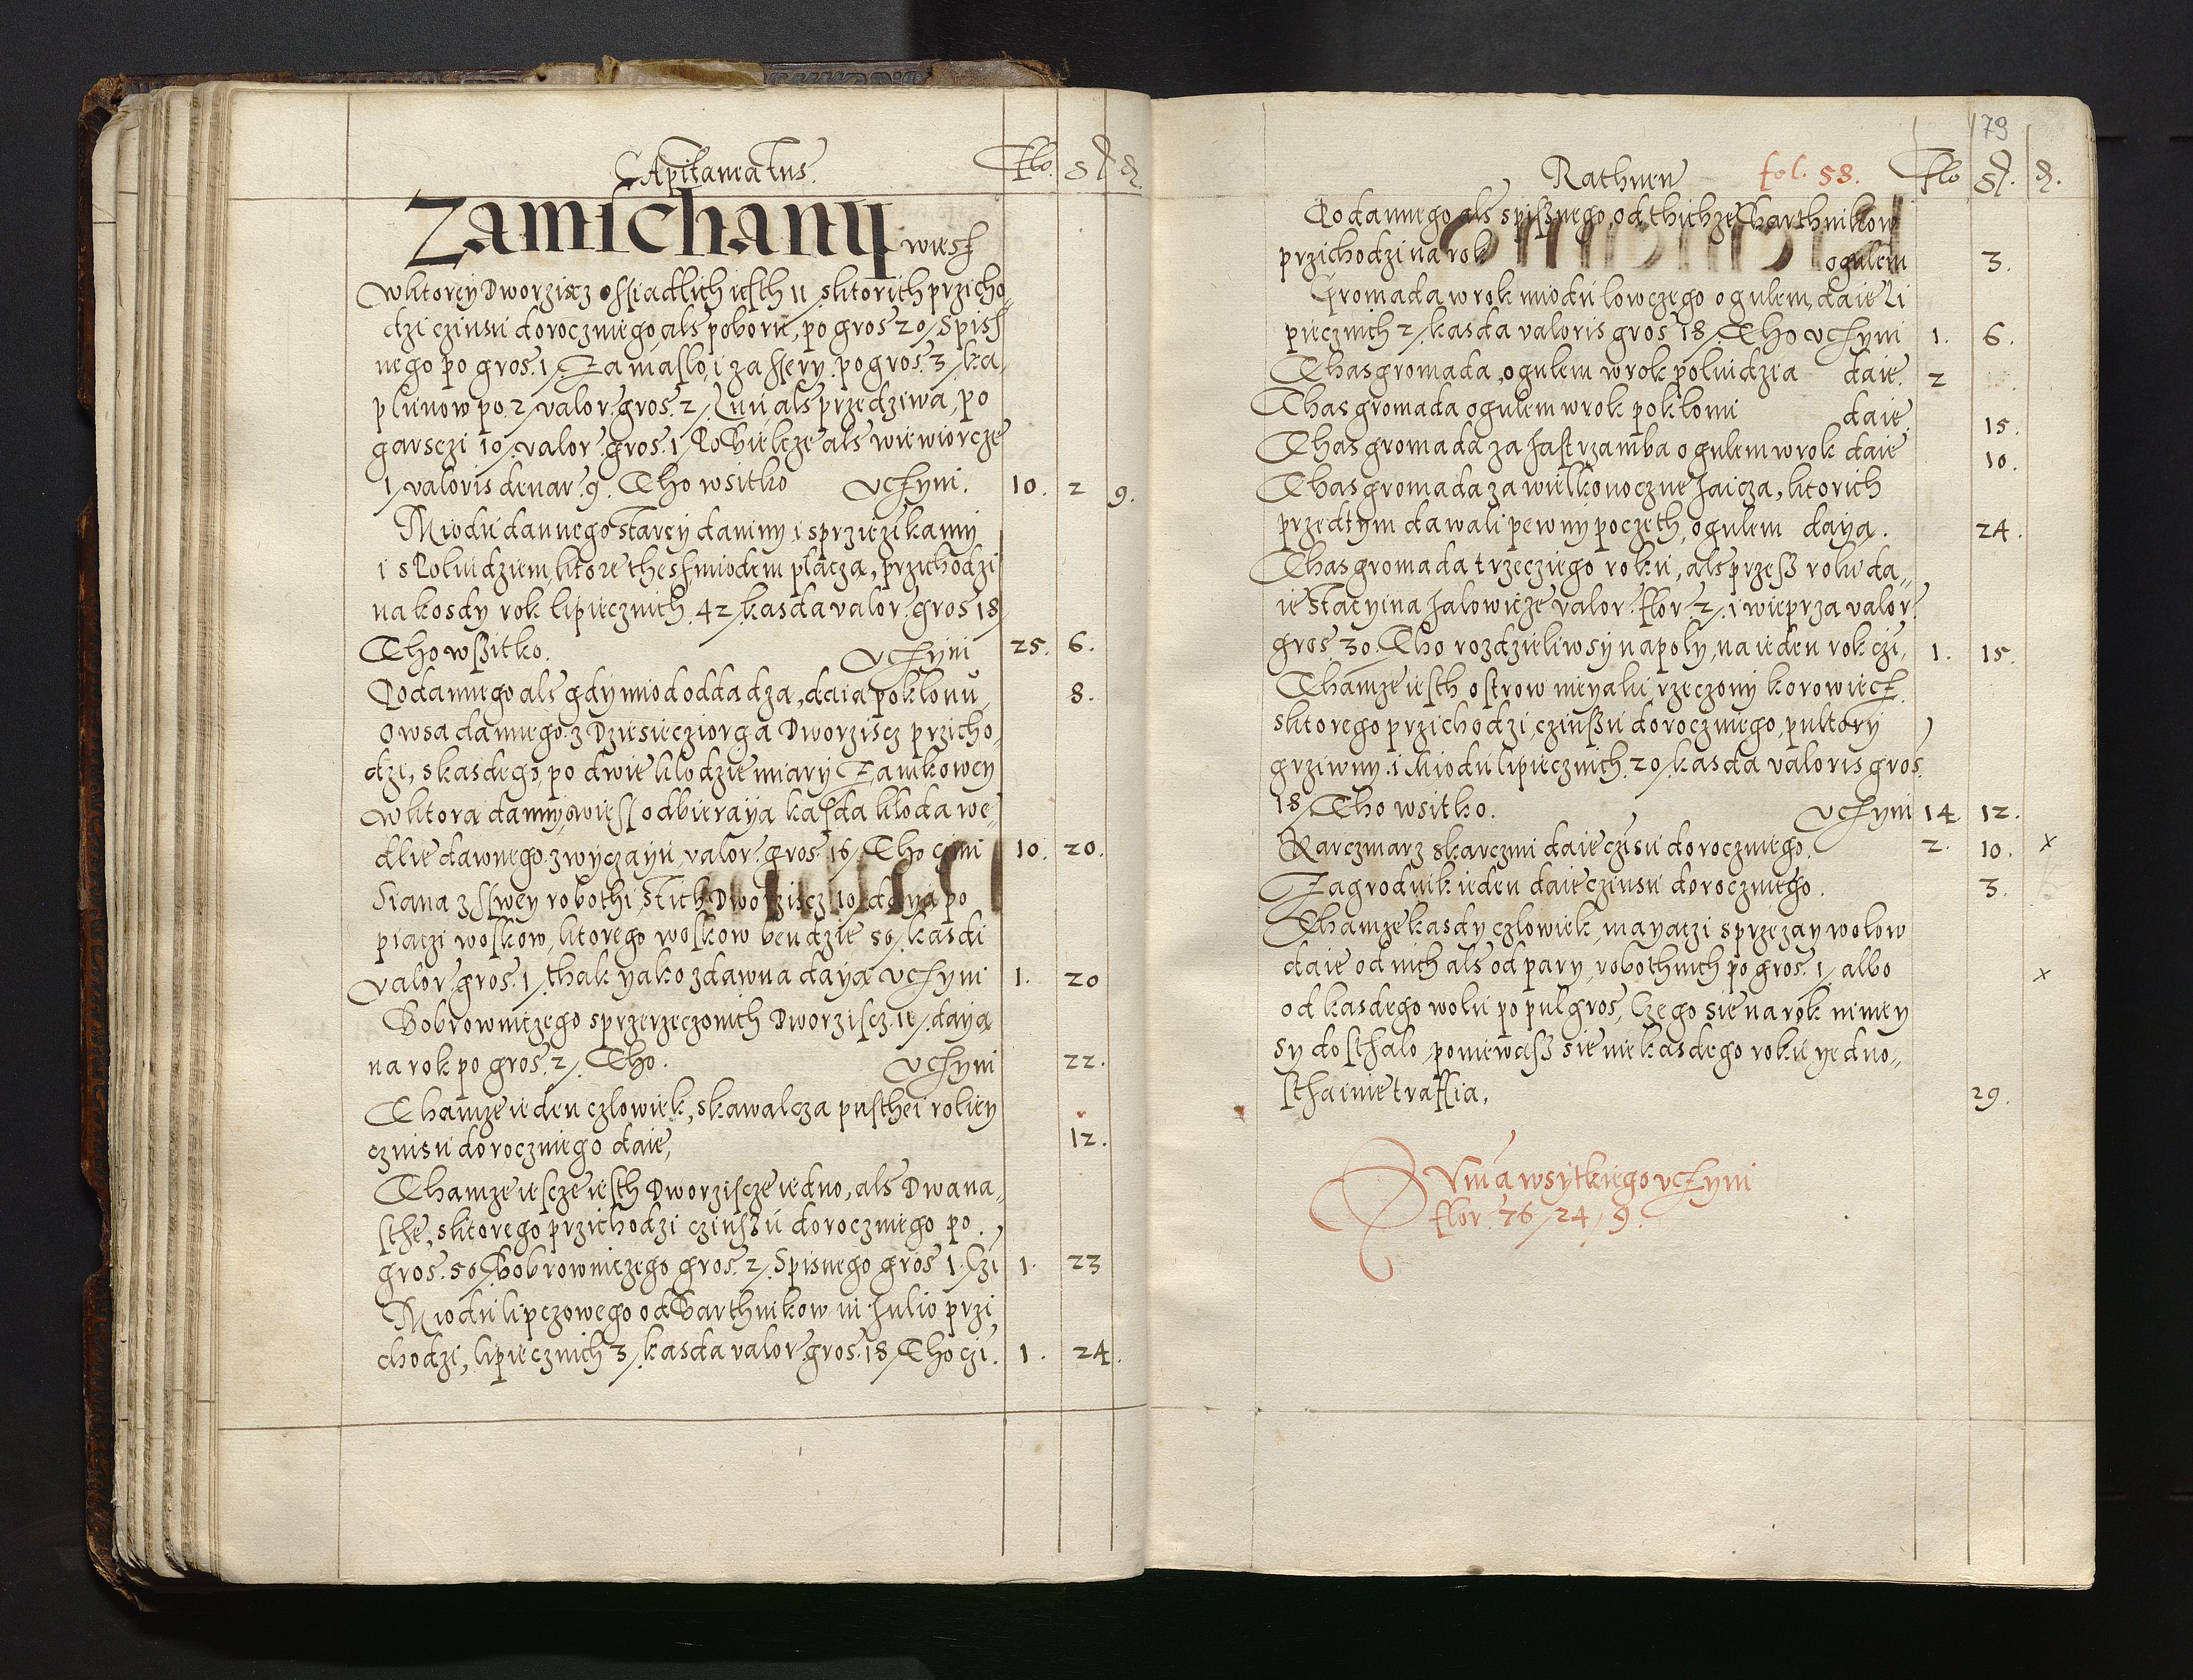 Capitaneatus. Flo. gr. d.
Zamschany wiesz
Wktorey Dworziscz ossiadlich iesth 11 sktorich przicho„
dzi czinsu dorocznego, als poboru, po gros 20/ Spisz
nego po gros. 1/ Za maslo, i za Sery. po gros. 3/ ka„
plunow po. 2/ valor. gros. 2/ Lnu als przedziwa, po
garsczi 10/ valor. gros. 1/ Pobielcze als wiewiorcze
1/ valoris denar. 9. Tho wsitko uczyni. 10. 2 9.
Miodu dannego starey daniny i sprziezikamy
i s Poluidziem, ktore thesz miodem placza, przichodzi
na kosdy rok lipiecznich. 42/ kasda valor. gros 18/
Tho wszitko. uczyni 25. 6.
Podannego als gdy miod oddadza, daia poklonu 8.
Owsa dannego. z Dziesiecziorga Dworziscz przicho„
dzi, s kasdego, po dwie klodzie miary Zamkowey
w ktora danny owies odbieraya kasda kloda we„
dlie dawnego zwyczayu, valor. gros. 16/ Tho czini 10. 20.
Siana z swey robothi, s tich Dworziscz 10/ daya po
piaczi woskow, ktorego woskow bendzie 50/ kasdi
valor. gros. 1/ thak yako zdawna daya uczyni 1. 20
Bobrowniczego sprzerzeczonich Dworziscz. 11/ daya
na rok po gros. 2/ Tho. uczyni 22.
Thamze ieden czlowiek, s kawalcza pusthei roliey
czinsu dorocznego daie, 12.
Thamze iescze iesth Dworziscze iedno, als Dwana„
sthe, sktorego przichodzi czinszu dorocznego po.
gros. 50/ Bobrowniczego gros. 2/ Spisnego gros 1. Czi 1. 23
Miodu lipczowego od Barthnikow in Julio przi
chodzi, lipiecznich 3/ kasda valor. gros. 18/ Tho czi. 1. 24.
79
Rathnen fol. 58. Flo gr. d.
Podannego als spisznego, od thichze Barthnikow
przichodzi na rok ogulem 3.
Gromada w rok miodu lowczego ogulem, daie Li
piecznich 2/ kasda valoris gros 18/ Tho uczyni 1. 6.
Thas gromada, ogulem w rok poluidzia daie. 2
Thas gromada ogulem w rok poklonu daie. 15.
Thas gromada za Jastrzamba ogulem w rok daie 10.
Thas gromada za wielkonoczne Jaicza, ktorich
przedtym dawali pewny poczeth, ogulem daya. 24.
Thas gromada trzecziego roku, als przesz roku da„
ie Stacyi na Jalowicze valor. flor. 2/ i wieprza valor.
gros 30. Tho rozdzieliwsy napoly, na ieden rok czi, 1. 15.
Thamze iesth ostrow nieyaki, rzeczony korowiecz
sktorego przichodzi, czinszu dorocznego, pultory
grziwny. i Miodu lipiecznich. 20/ kasda valoris gros.
18/ Tho wsitko. uczyni 14 12.
Karczmarz s karczmi daie czinsu dorocznego. 2. 10. x
Zagrodnik ieden daie czinsu dorocznego. 3.
Thamze kasdy czlowiek, mayaczi sprzezay wolow
daie od nich als od pary, robothnich po gros. 1/ albo
od kasdego wolu po pul gros, Czego sie na rok niniey x
sy dosthalo, poniewasz sie nie kasdego roku yedno„
sthainie traffia. 29.
Suma wsytkiego uczyni
flor. 76/ 24/ 9.